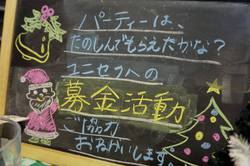 パーティーは、
たのしんでもらえたかな?
ユニセフへの
募金活動
ご協力
おねがいします。